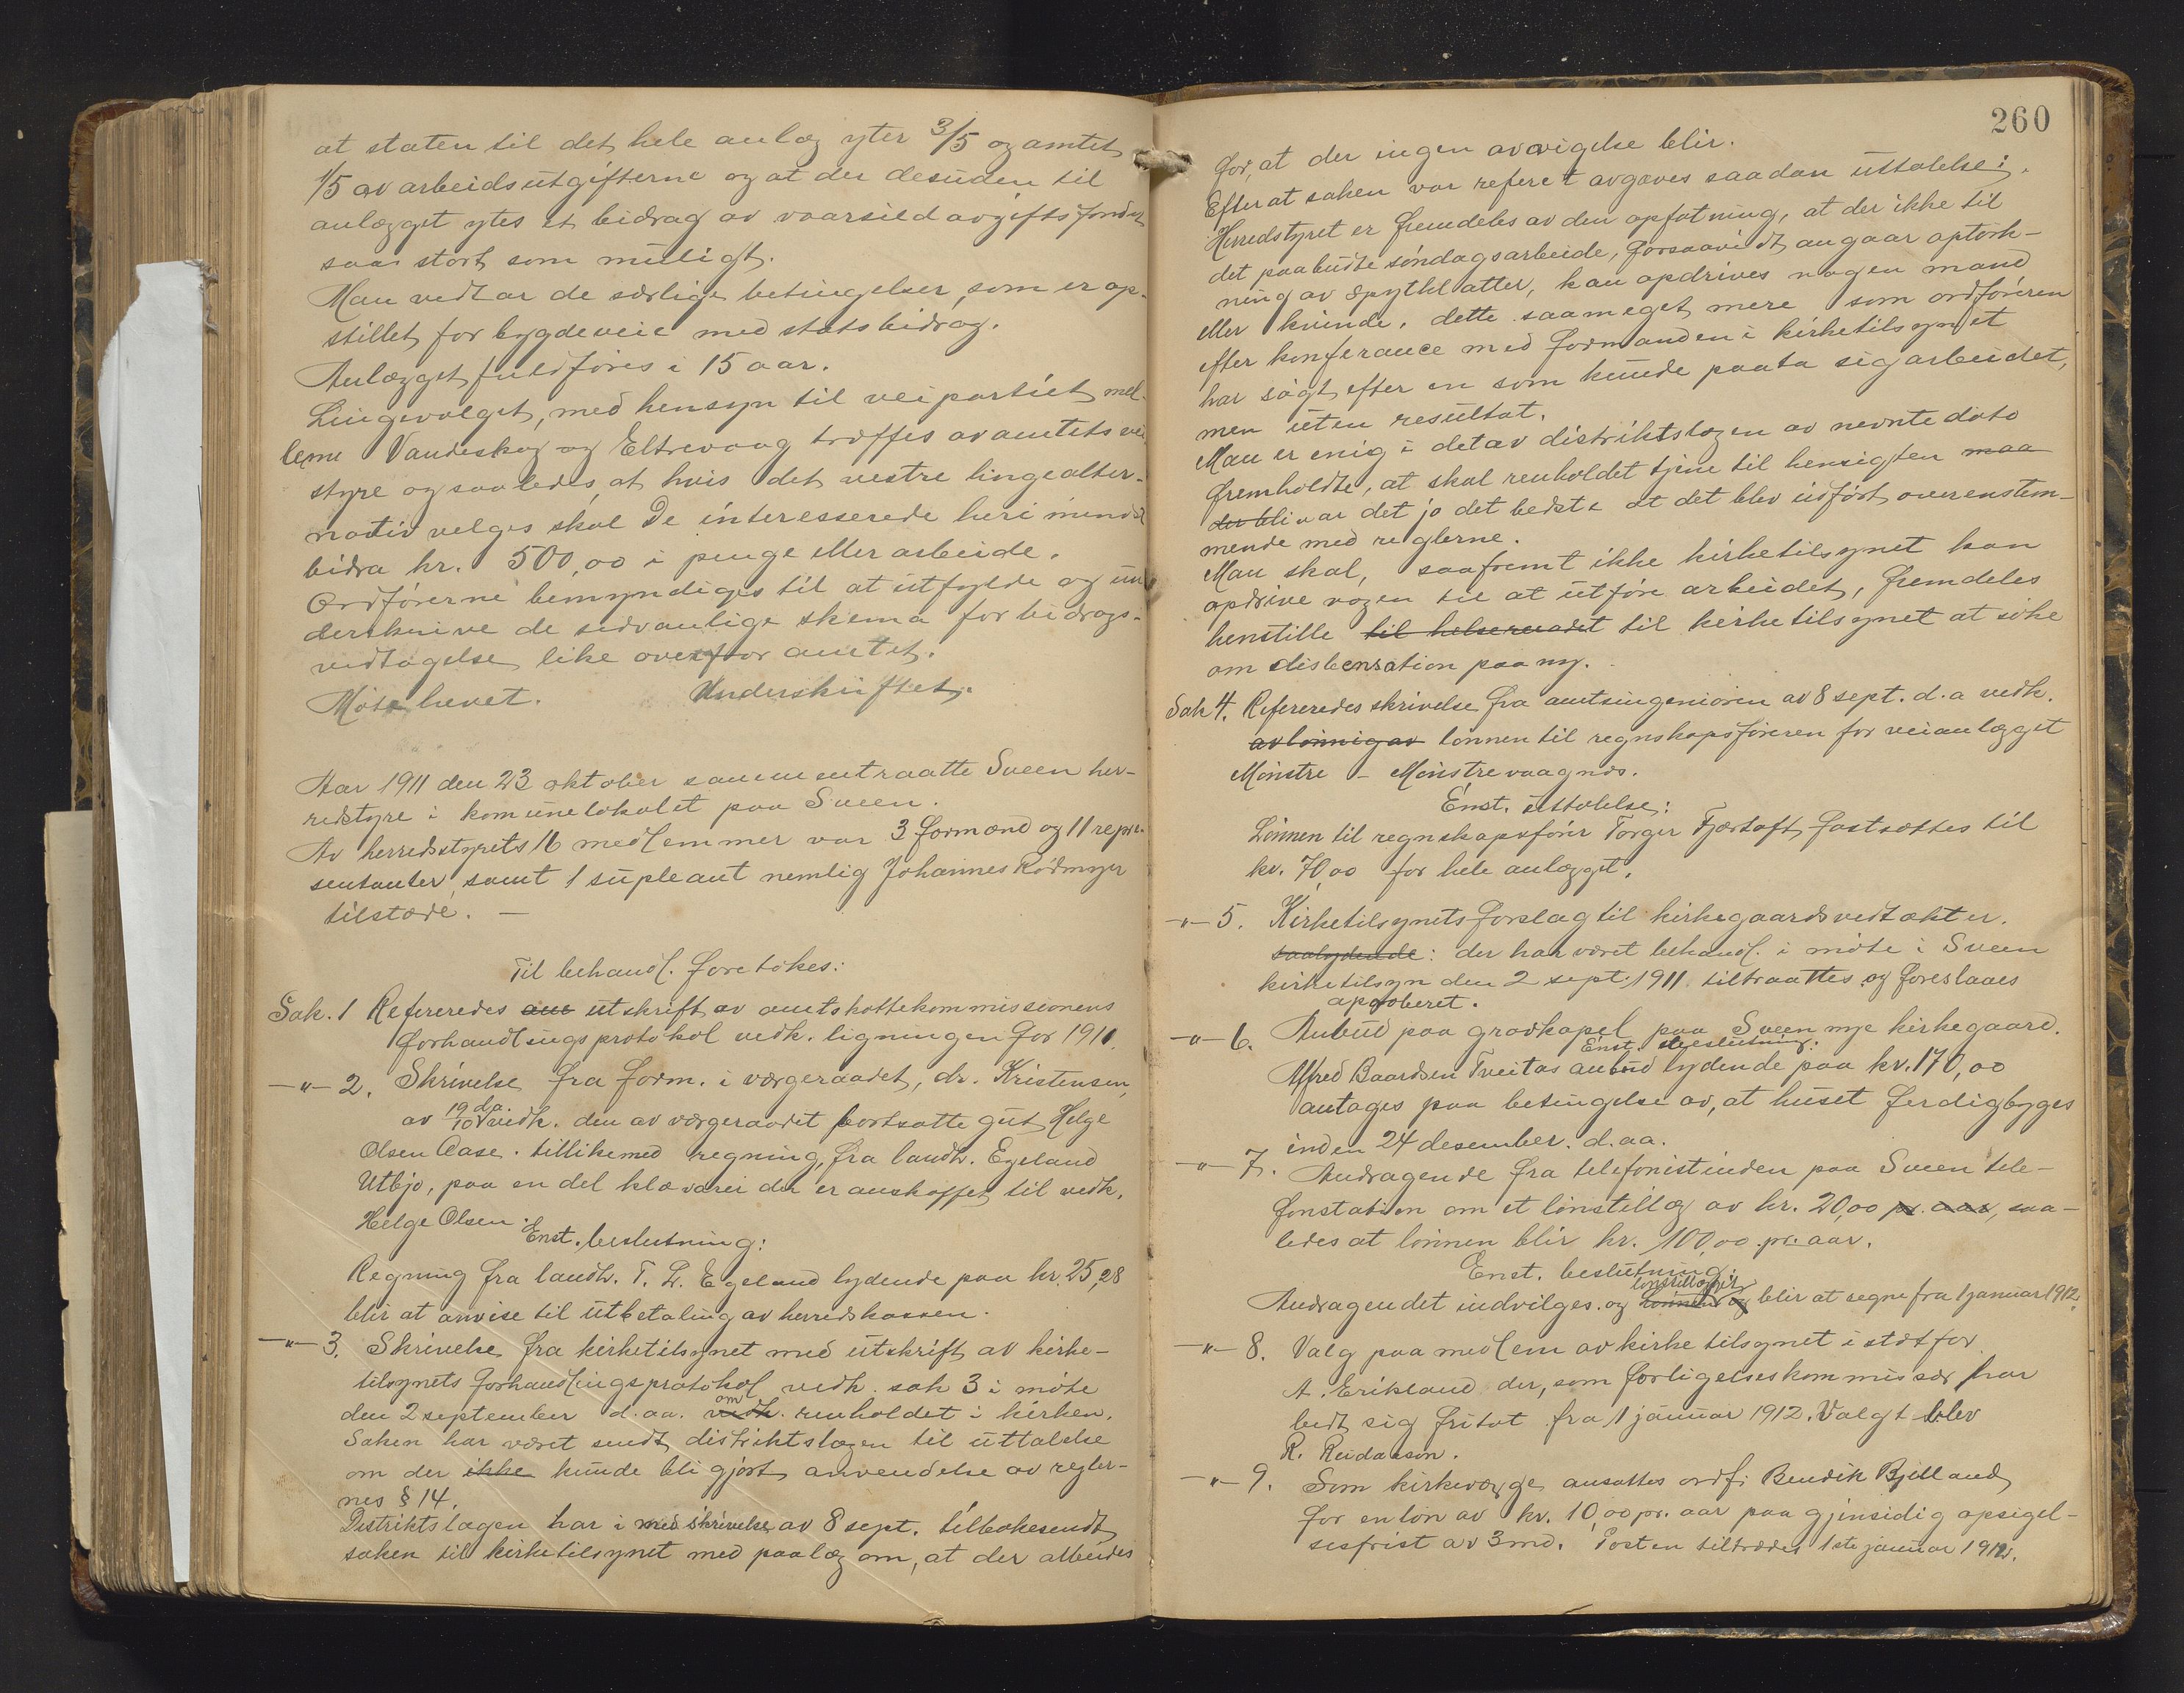 at staten til det hele anlæg yter 3/5 og amtet
1/5 av arbeidsutgifterne og at der desuden til
anlægget ytes et bidrag av vaarsildavgiftsfondet
saa stort som muligt.
Man vedtar de særlige betingelser, som er op-
stillet for bygdeveie med statsbidrag.
Anlægget fuldføres i 15 aar.
Lingevalget, med hensyn til veipartiet mel-
lem Vandeskog og Eltrevaag træffes av amtets vei
styre og saaledes, at hvis det vestre lingealter-
nativ velges skal De interesserede heri mindst
bidra kr. 500,00 i penge eller arbeide.
Ordførerne bemyndiges til at utfylde og un
derskrive de sedvanlige skema for bidrags-
vedtagelse like overfor amtet.
Møte hevet. Underskriftet.
Aar 1911 den 23 oktober sammentraatte Sveen her-
redstyre i komunelokalet paa Sveen.
Av herredsstyrets 16 medlemmer var 3 formænd og 11 repre-
sentanter, samt 1 supleant nemlig Johannes Rødmyr
tilstæde. —
Til behandl. foretokes:
Sak. 1 Refereredes utskrift av amtskattekommissionens
forhandlingsprotokol vedk. ligningen for 1910.
—"— 2. Skrivelse fra form. i værgeraadet, dr. Kristensen,
av 19/10 d.a. vedk. den av værgeraadet bortsatte gut Helge
Olsen Aase. tillikemed regning, fra landh. Egeland
Utbjo, paa en del klævarer der er anskaffet til vedk.
Helge Olsen.
Enst. beslutning:
Regning fra landh. T. L. Egeland lydende paa kr. 25,28
blir at anvise til utbetaling av herredskassen.
—"— 3. Skrivelse fra kirketilsynet med utskrift av kirke-
tilsynets forhandlingsprotokol vedk. sak 3 i møte
den 2 september d.aa. vedk. om renholdet i kirken.
Saken har været sendt distriktslægen til uttalelse
om der ikke kunde bli gjort anvendelse av regler-
nes § 14.
Distriktslægen har i med skrivelse av 8 sept. tilbakesendt
saken til kirketilsynet med paalæg om, at der arbeides
260
for, at der ingen avvigelse blir.
Efter at saken var referet avgaves saadan uttalelse:
Herredstyret er fremdeles av den opfatning, at der ikke til
det paabudte søndagsarbeide, forsaavidt angaar optørk-
ning av spytklatter, kan opdrives nogen mand
eller kvinde. dette saameget mere som ordføreren
efter konferance med formanden i kirketilsynet
har søgt efter en som kunde paata sig arbeidet,
men uten resultat.
Man er enig i det av distriktslægen av nevnte dato
fremholdte, at skal renholdet tjene til hensigten maa
der bli var det jo det bedste at det blev utført overenstem-
mende med reglerne.
Man skal, saafremt ikke kirketilsynet kan
opdrive nogen til at utføre arbeidet, fremdeles
henstille til helseraadet til kirketilsynet at søke
om disbensation paa ny.
Sak 4. Refereredes skrivelse fra amtsingeniøren av 8 sept. d.a vedk.
avlønnig av lønnen til regnskapsføreren for veianlægget
Mønstre - Mønstrevaagnes.
Enst. uttalelse:
Lønnen til regnskapsfører Torger Fjærtoft fastsættes til
kr. 70,00 for hele anlægget.
—"— 5. Kirketilsynets forslag til kirkegaardsvedtækter.
saalydende: der har været behandl. i møte i Sveen
kirketilsyn den 2 sept. 1911 tiltraattes og foreslaaes
approberet.
—"— 6. Anbud paa gravkapel paa Sveen nye kirkegaard.
Enst. beslutning:
Alfred Baardsen Tveitas anbud lydende paa kr. 170,00
antages paa betingelse av, at huset ferdigbygges
inden 24 desember. d.aa.
—"— 7. Andragende fra telefonistinden paa Sveen tele-
fonstation om et lønstillæg av kr. 20,00 pr. aar, saa-
ledes at lønnen blir kr. 100,00 pr. aar.
Enst. beslutning:
lønstillægget
Andragendet indvilges. og lønnen og blir at regne fra 1 januar 1912.
—"— 8. Valg paa medlem av kirketilsynet i stedt for
A. Erikland der, som forligelseskommissær har
bedt sig fritat fra 1 januar 1912. Valgt blev
R. Reidarson.
—"— 9. Som kirkeværge ansattes ordf. Bendik Bjelland
for en løn av kr. 10,00 pr. aar paa gjensidig opsigel-
sesfrist av 3 md. Posten tiltrædes 1ste januar 1912.